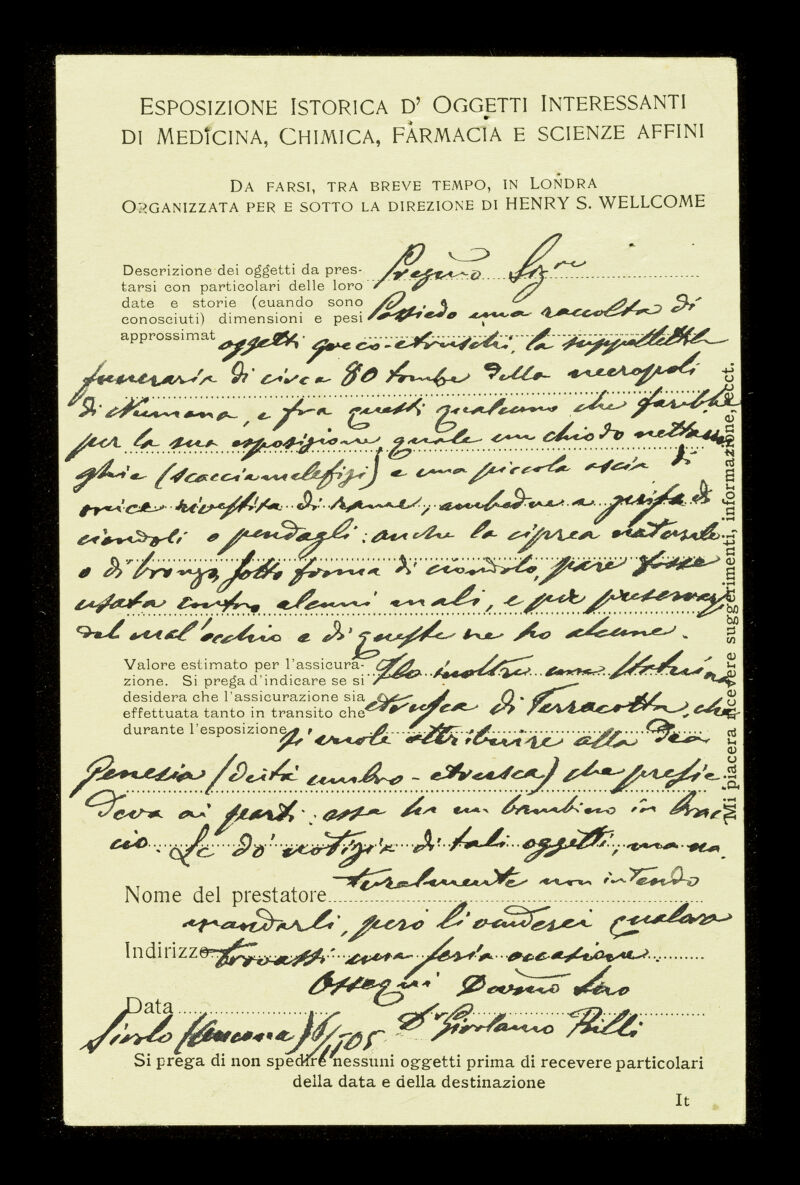 ESPOSIZIONE ISTORICA D' OGGETTI INTERESSANTI
DI MEDICINA, CHIMICA, FARMACIA E SCIENZE AFFINI
DA FARSI, TRA BREVE TEMPO, IN LONDRA
ORGANIZZATA PER E SOTTO LA DIREZIONE DI HENRY S. WELLCOME
Descrizione dei oggetti da pres-
tarsi con particolari delle loro
date e storie (cuando sono
conosciuti) dimensioni e pesi
approssimat
Pregmo Sigre
Possiedo una raccolta di
oggetti greco-etruschi, la suppellettile
funeraria di circa 80 tombe della necropoli
di Numana, e fra questi qualcuno che farebbe
per la sua esposizione, quale un chiodo
(scacciamalefizi) e una piccola ascia di
onice rivestita di rame, ambedue a guisa di
ciondoli o pendagli: anche la ciprea naturale
o di bronzo, sotto forma di ciondolo, pare fosse
usata contro alcuni mali, e per preservarsi
dal mal'occhio e di queste ne ho alcune.
Valore estimato per l'assicura-
zione. Si prega d'indicare se si
desidera che l'assicurazione sia
effettuata tanto in transito che
durante l'esposizione
Ho inoltre una statuina
etrusca di Terracotta, che
si vuole attribuire alla Dea
(deità umbro-etrusca) che presie-
deva ai parti: essa ha un bambino in brac-
cio. Le dò notizia di tali oggetti, ma na
turalmente non intendo
Nome del prestatore
mandarli, però li venderei qualora
Indirizzo
trovassi una seria occasione
Ossequi Devmo Suo
Data
Dr Girolamo Rilli
Sirolo (Ancona)
Si prega di non spedire nessuni oggetti prima di recevere particolari
della data e della destinazione
It
Mi piacera ricevere suggerimenti, informazione, ecct.